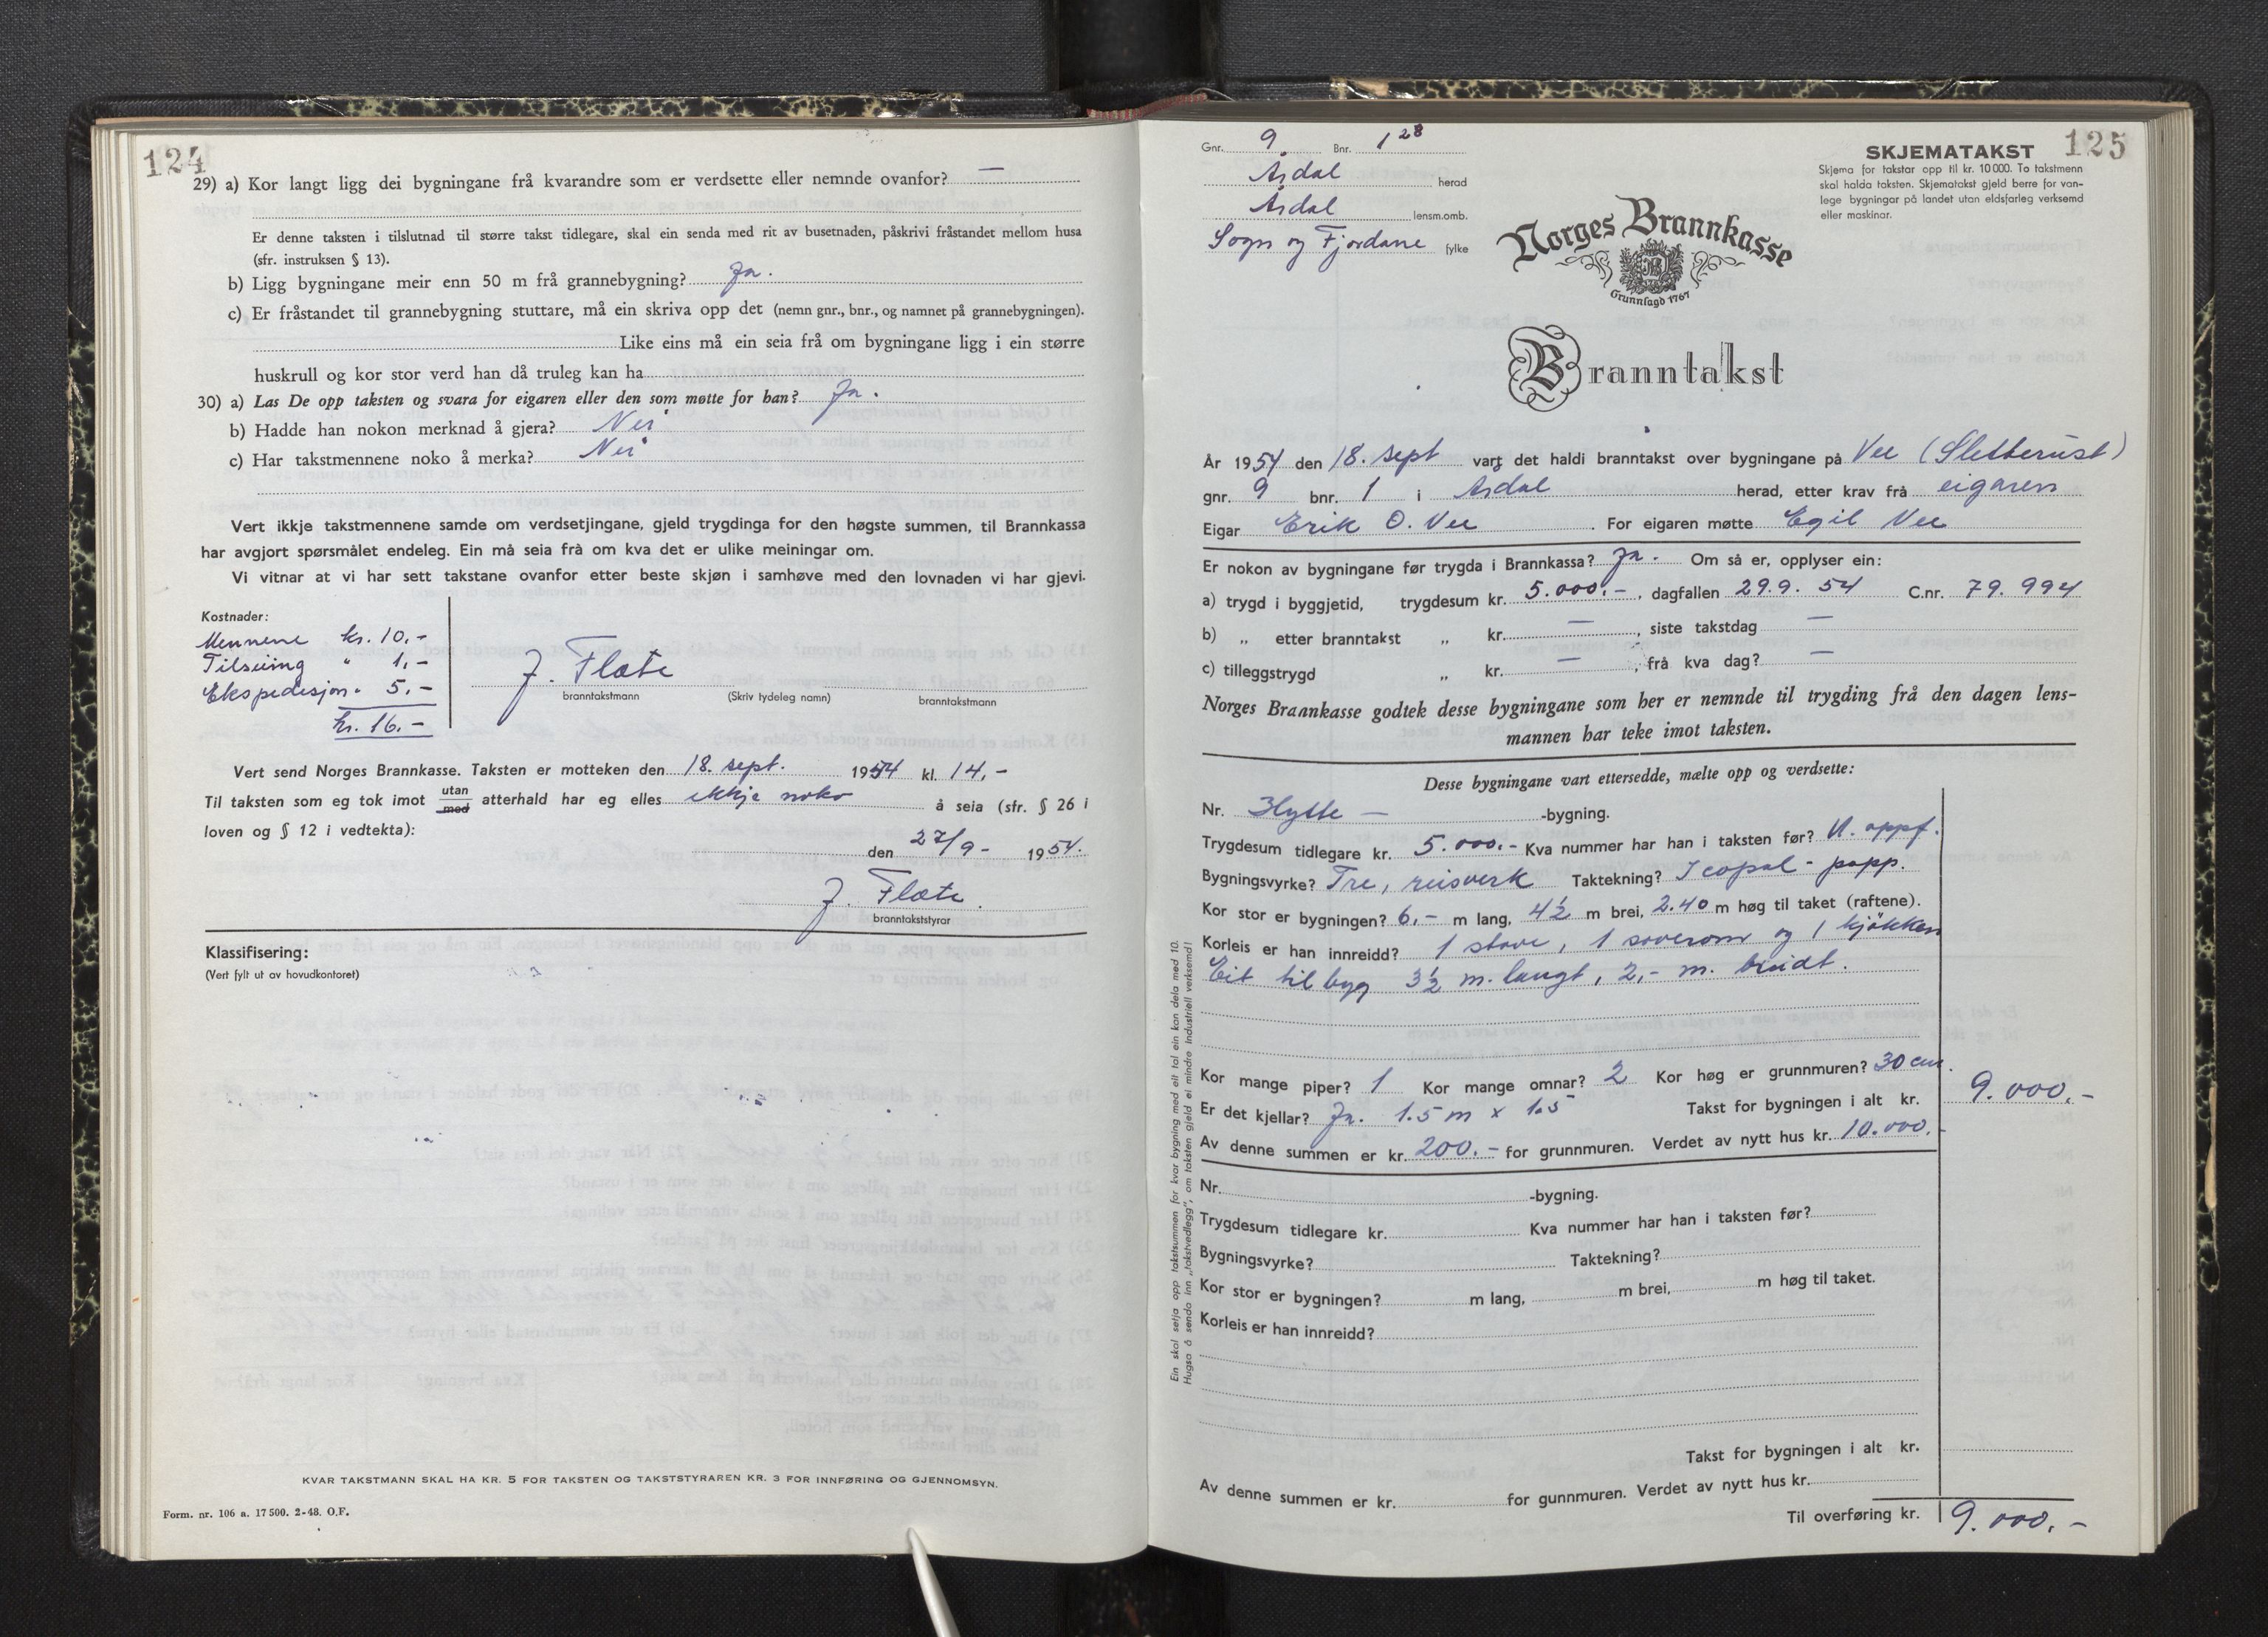 124
29) a) Kor langt ligg dei bygningane frå kvarandre som er verdsette eller nemnde ovanfor? —
Er denne taksten i tilslutnad til større takst tidlegare, skal ein senda med rit av busetnaden, påskrivi fråstandet mellom husa
(sfr. instruksen § 13).
b) Ligg bygningane meir enn 50 m frå grannebygning? Ja.
c) Er fråstandet til grannebygning stuttare, må ein skriva opp det (nemn gnr., bnr., og namnet på grannebygningen).
Like eins må ein seia frå om bygningane ligg i ein større
huskrull og kor stor verd han då truleg kan ha
30) a) Las De opp taksten og svara for eigaren eller den som møtte for han? Ja.
b) Hadde han nokon merknad å gjera? Nei
c) Har takstmennene noko å merka? Nei
Vert ikkje takstmennene samde om verdsetjingane, gjeld trygdinga for den høgste summen, til Brannkassa
har avgjort spørsmålet endeleg. Ein må seia frå om kva det er ulike meiningar om.
Vi vitnar at vi har sett takstane ovanfor etter beste skjøn i samhøve med den lovnaden vi har gjevi.
Kostnader:
Mennene kr. 10,-
Tilsuing " 1,-
Ekspedisjon " 5,-
kr. 16.-
J. Flate
branntakstmann (Skriv tydeleg namn) branntakstmann
Vert send Norges Brannkasse. Taksten er motteken den 18. sept. 1954 kl. 14,-
Til taksten som eg tok imot utan/med atterhald har eg elles ikkje noko å seia (sfr. § 26 i
loven og § 12 i vedtekta):
den 27/9 - 1954.
J. Flate.
branntakststyrar
Klassifisering:
(Vert fylt ut av hovudkontoret)
KVAR TAKSTMANN SKAL HA KR. 5 FOR TAKSTEN OG TAKSTSTYRAREN KR. 3 FOR INNFØRING OG GJENNOMSYN.
Form. nr. 106 a. 17 500. 2-48. O.F.
125
Gnr. 9 Bnr. 1 28
Årdal herad
Årdal lensm.omb.
Sogn og Fjordane fylke
SKJEMATAKST
Skjema for takstar opp til kr. 10 000. To takstmenn
skal halda taksten. Skjematakst gjeld berre for van-
lege bygningar på landet utan eldsfarleg verksemd
eller maskinar.
Norges Brannkasse
Grunnlagd 1767
Branntakst
År 1954 den 18. sept vart det haldi branntakst over bygningane på Vee (Sletterust)
gnr. 9 bnr. 1 i Årdal herad, etter krav frå eigaren
Eigar Erik O. Vee. For eigaren møtte Egil Vee
Er nokon av bygningane før trygda i Brannkassa? Ja. Om så er, opplyser ein:
a) trygd i byggjetid, trygdesum kr. 5.000.-, dagfallen 29.9. 54 C.nr. 79.994
b) „ etter branntakst „ kr. —, siste takstdag —
c) tilleggstrygd „ kr. —, frå kva dag? —
Norges Brannkasse godtek desse bygningane som her er nemnde til trygding frå den dagen lens-
mannen har teke imot taksten.
Desse bygningane vart ettersedde, mælte opp og verdsette:
Nr. Hytte — -bygning.
Trygdesum tidlegare kr. 5.000.- Kva nummer har han i taksten før? U. oppf.
Bygningsvyrke? Tre, reisverk Taktekning? Icopal - papp.
Kor stor er bygningen? 6,- m lang, 4½ m brei, 2.40 m høg til taket (raftene).
Korleis er han innreidd? 1 stove, 1 soverom og 1 kjøkken
Eit tilbygg 3½ m. langt, 2,- m. breidt.
Kor mange piper? 1 Kor mange omnar? 2 Kor høg er grunnmuren? 30 cm.
Er det kjellar? Ja. 1.5 m x 1.5 Takst for bygningen i alt kr. 9.000.-
Av denne summen er kr. 200.- for grunnmuren. Verdet av nytt hus kr. 10.000.-
Nr. -bygning.
Trygdesum tidlegare kr. Kva nummer har han i taksten før?
Bygningsvyrke? Taktekning?
Kor stor er bygningen? m lang, m brei, m høg til taket.
Korleis er han innreidd?
Takst for bygningen i alt kr.
Av denne summen er kr. for gunnmuren. Verdet av nytt hus kr.
Til overføring kr. 9.000.-
Ein skal setja opp takstsummen for kvar bygning med eit tal ein kan dela med 10.
Hugsa å senda inn „takstvedlegg", om taksten gjeld ei mindre industriell verksemd!